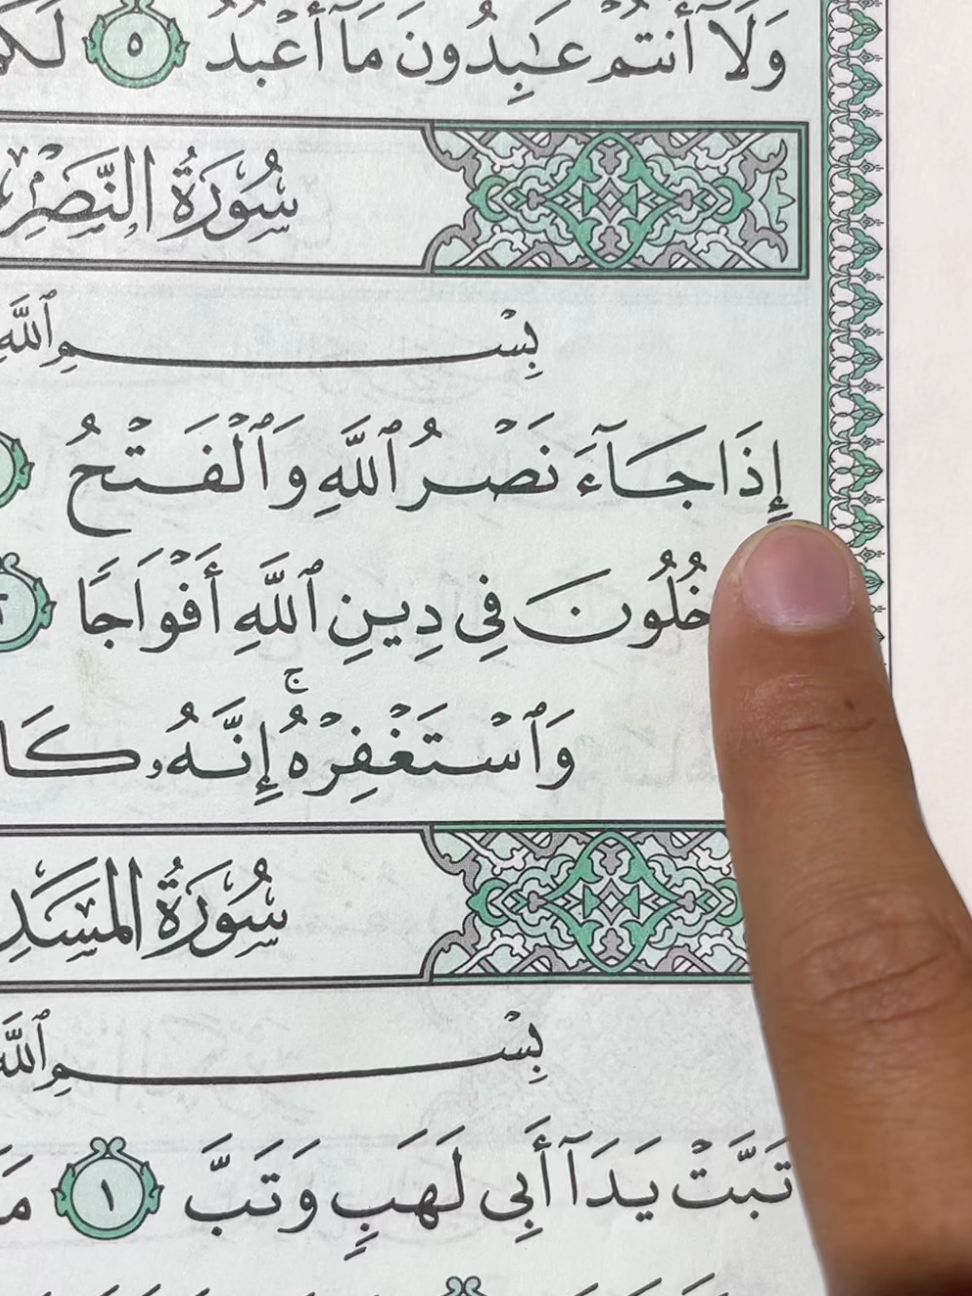 وَلَآ أَنتُمْ عَٰبِدُونَ مَآ أَعْبُدُ ٥
سُورَةُ النَّصْرِ
بِسْمِ ٱللَّهِ
إِذَا جَآءَ نَصْرُ ٱللَّهِ وَٱلْفَتْحُ
فِى دِينِ ٱللَّهِ أَفْوَاجًا
وَٱسْتَغْفِرْهُ ۚ إِنَّهُۥ
سُورَةُ المَسَدِ
بِسْمِ ٱللَّهِ
تَبَّتْ يَدَآ أَبِى لَهَبٍ وَتَبَّ ١